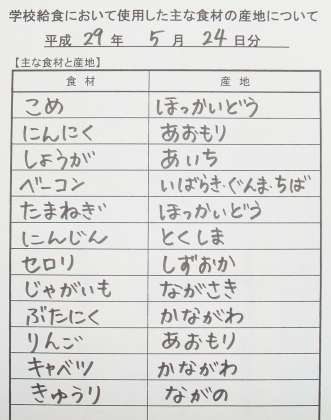 学校給食において使用した主な食材の産地について
平成 29 年 5 月 24 日分
【主な食材と産地】
食材 産地
こめ ほっかいどう
にんにく あおもり
しょうが あいち
ベーコン いばらき・ぐんま・ちば
たまねぎ ほっかいどう
にんじん とくしま
セロリ しずおか
じゃがいも ながさき
ぶたにく かながわ
りんご あおもり
キャベツ かながわ
きゅうり ながの